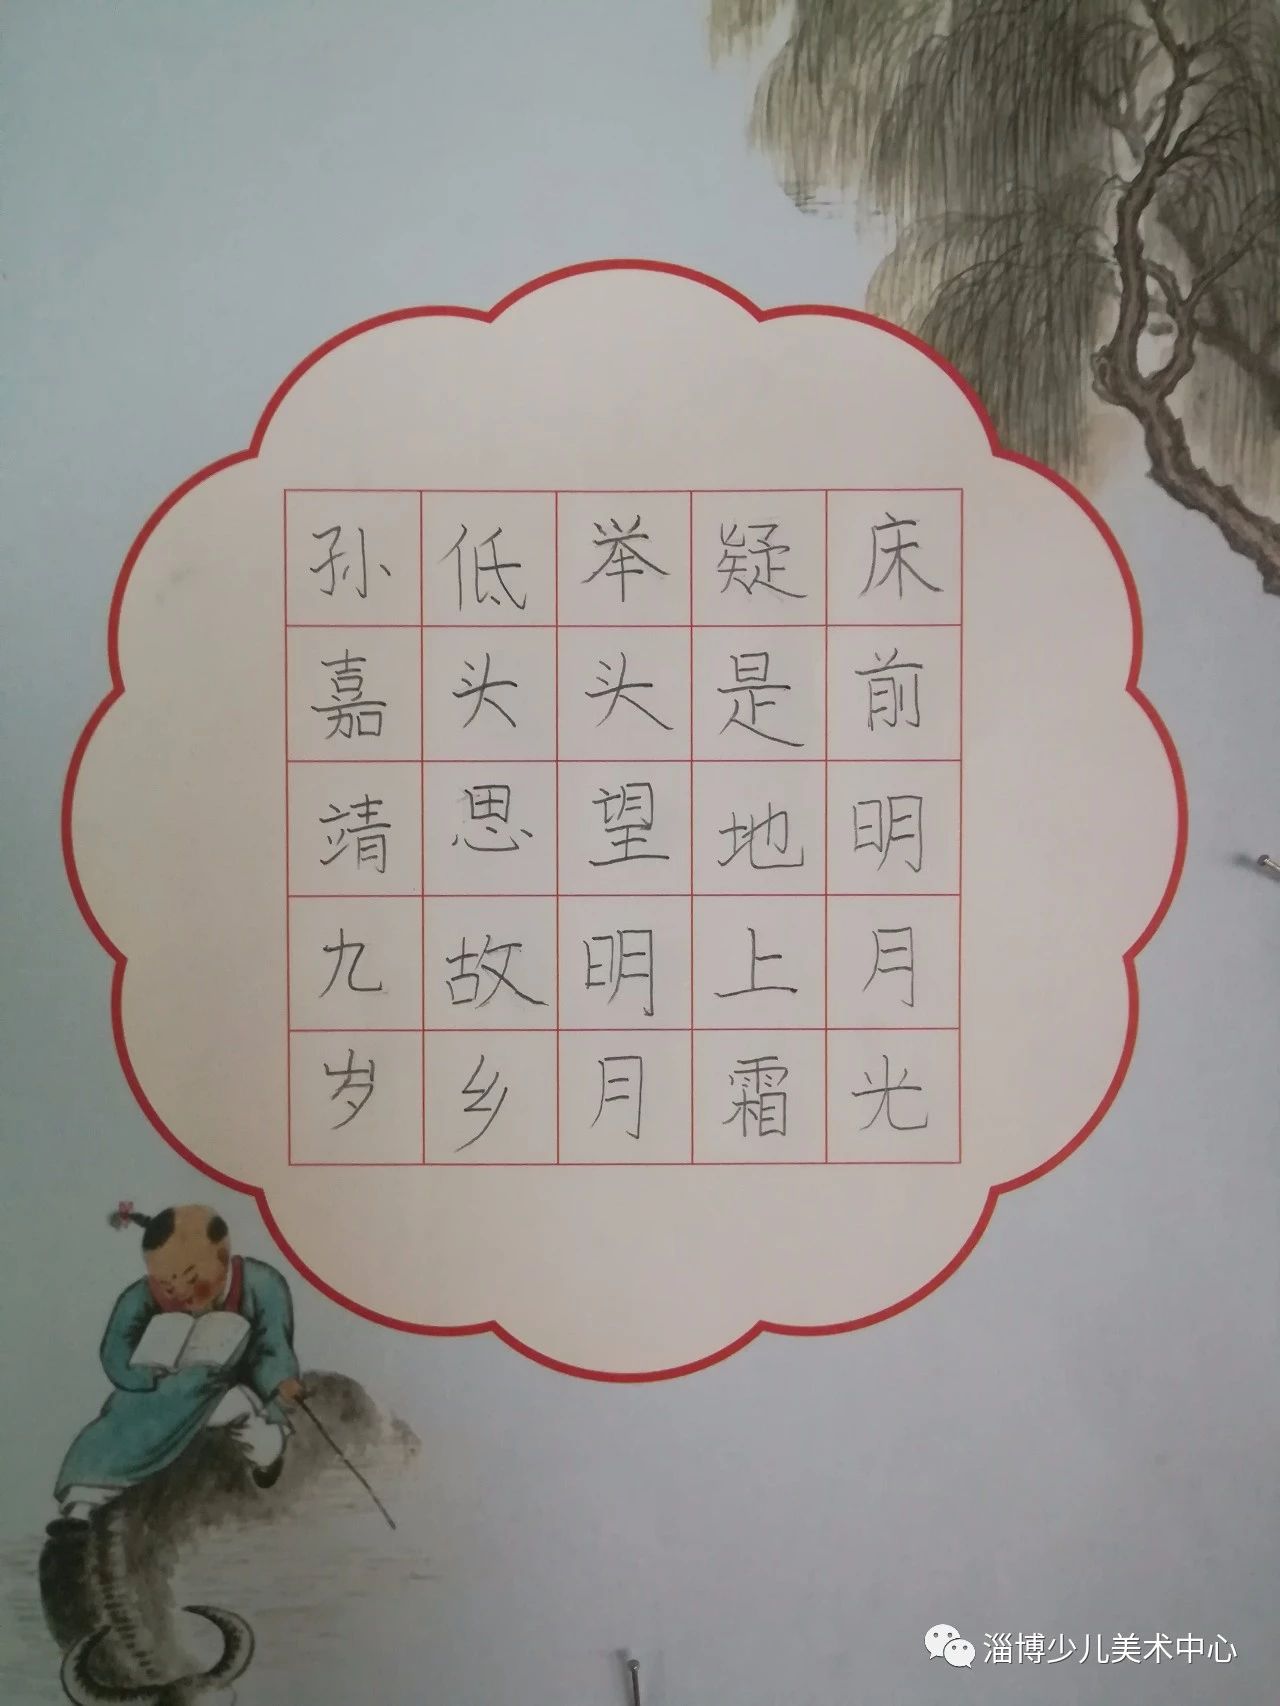 床前明月光
疑是地上霜
举头望明月
低头思故乡
孙嘉靖九岁
淄博少儿美术中心